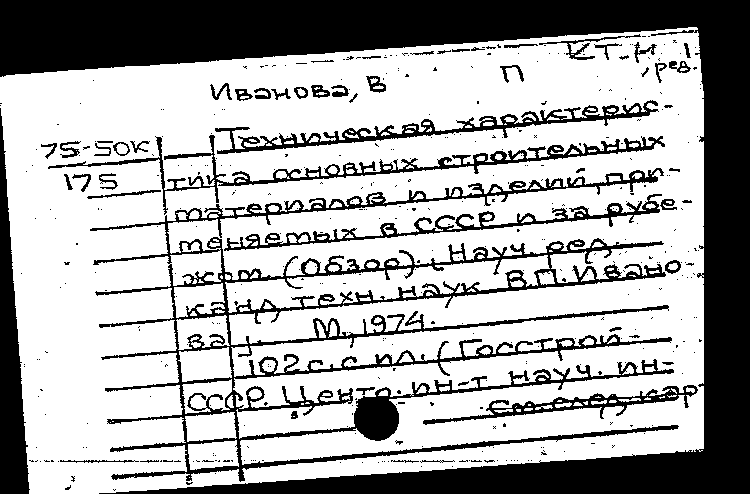 КТ-Н 1
Иванова, В П , ред.
75-50К Техническая характерис-
175 тика основных строительных
материалов и изделий, при-
меняемых в СССР и за рубе-
жом. (Обзор). Науч. ред.
канд. техн. наук В.П. Ивано-
ва. М., 1974.
102 с. с ил. (Госстрой-
СССР. Центр. ин-т науч. ин-
См. след. кар